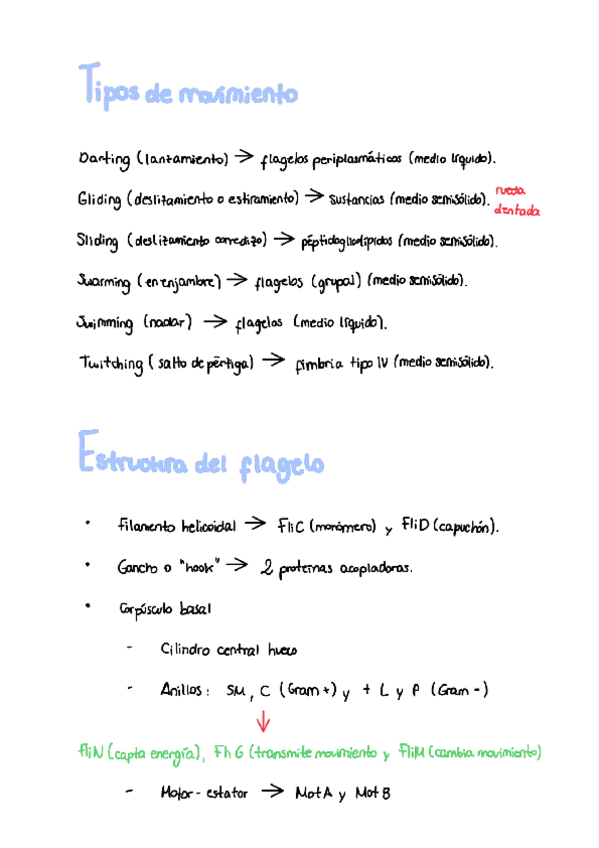 Tipos de movimiento
Darting (lanzamiento) → flagelos periplasmáticos (medio líquido).
Gliding (deslizamiento o estiramiento) → sustancias (medio semisólido). rueda dentada
Sliding (deslizamiento corredizo) → péptidoglicolípidos (medio semisólido).
Swarming (en enjambre) → flagelos (grupal) (medio semisólido).
Swimming (nadar) → flagelos (medio líquido).
Twitching (salto de pértiga) → fimbria tipo IV (medio semisólido).
Estructura del flagelo
• Filamento helicoidal → FliC (monómero) y FliD (capuchón).
• Gancho o "hook" → 2 proteínas acopladoras.
• Corpúsculo basal
- Cilindro central hueco
- Anillos: SM, C (Gram +) y + L y P (Gram -)
↓
FliN (capta energía), FhG (transmite movimiento y FliM (cambia movimiento)
- Motor-estator → MotA y MotB